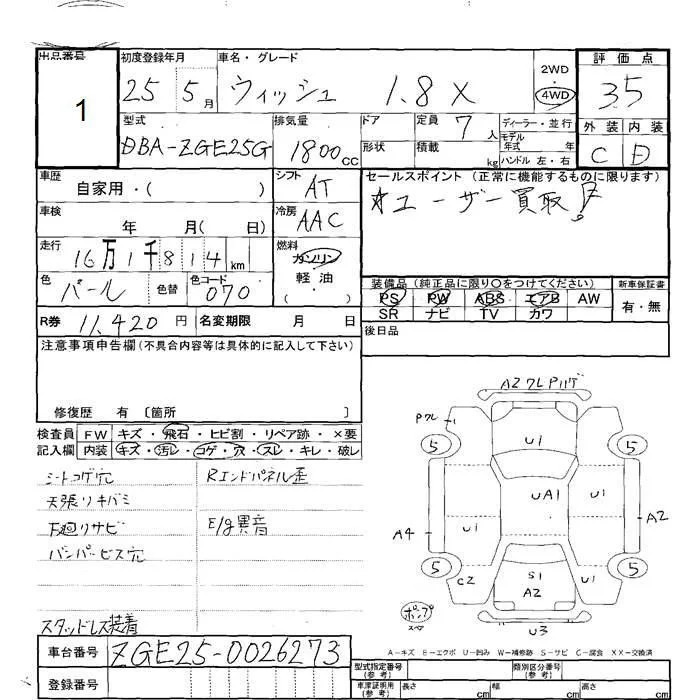 出品番号 初度登録年月 車名・グレード 2WD 評価点
1 25 5月 ウィッシュ 1.8 X 4WD 3.5
型式 排気量 ドア 定員 7人 ディーラー・並行 外装 内装
DBA-ZGE25G 1800cc 形状 積載 kg モデル年式 年 C D
ハンドル 左・右
車歴 自家用・( ) シフト AT セールスポイント (正常に機能するものに限ります)
車検 年 月( 日) 冷房 AAC ユーザー買取!
走行 16万1千814km 燃料 ガソリン
軽油
色 パール 色替 色コード 070 ・( )
装備品 (純正品に限り○をつけてください) 新車保証書
PS PW ABS エアB AW 有・無
SR ナビ TV カワ
R券 11,420円 名変期限 月 日 後日品
注意事項申告欄 (不具合内容等は具体的に記入して下さい)
修復歴 有 〔箇所 〕
検査員 FW キズ・飛石・ヒビ割・リペア跡・×要
記入欄 内装 キズ・汚レ・コゲ・穴・スレ・キレ・破レ
シートコゲ穴 Rエンドパネル歪
天張リキバミ
下廻リサビ E/g異音
バンパービス穴
スタッドレス装着
A2 ワレ Pハゲ
Pワレ
5 U1 5
UA1 U1
A4 U1 A2
5 5
C2 S1 U1
A2
ポンプ
スペア
U3
A-キズ E-エクボ U-凹み W-補修跡 S-サビ C-腐食 XX-交換済
車台番号 ZGE25-0026273
登録番号
型式指定番号 (参考) 類別区分番号 (参考)
車庫証明用 (参考) 長さ cm 幅 cm 高さ cm